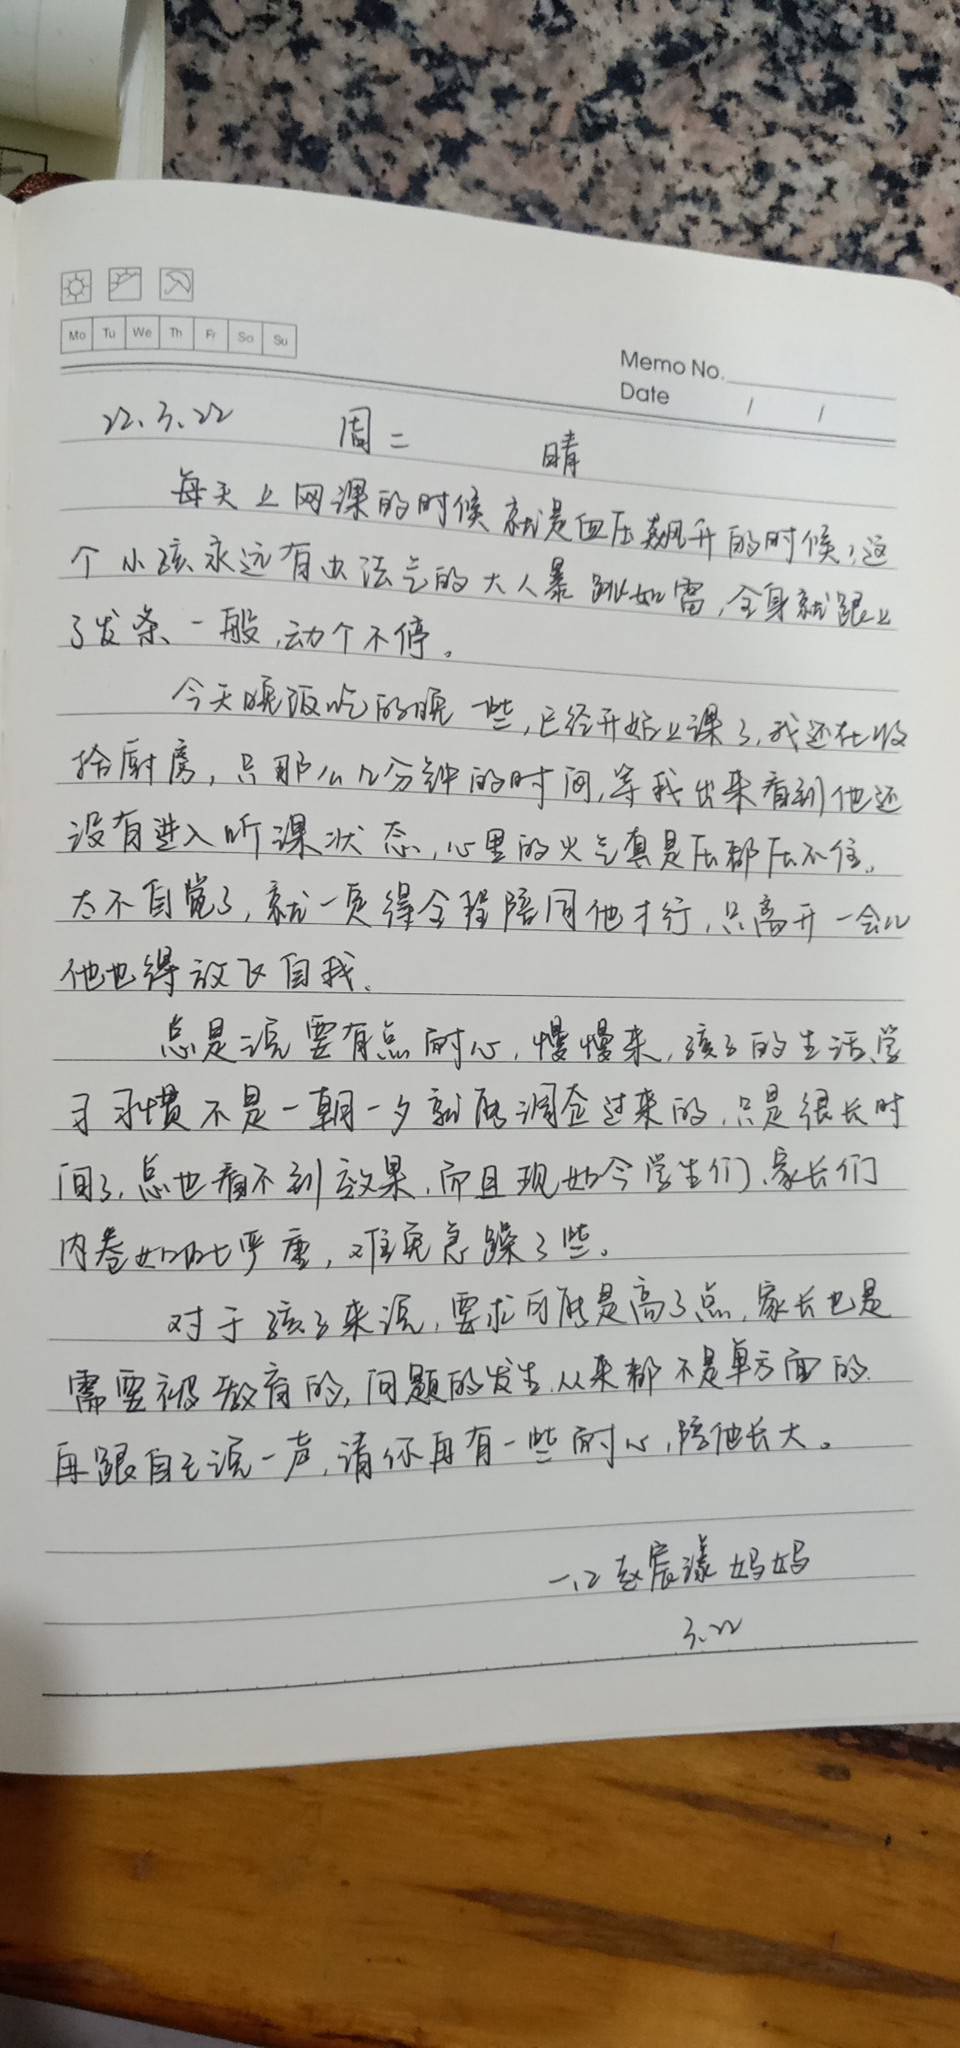 Mo Tu We Th Fr Sa Su
Memo No.
Date / /
22.3.22 周二 晴
每天上网课的时候就是血压飙升的时候,这
个小孩永远有办法气的大人暴跳如雷,全身就跟上
了发条一般,动个不停。
今天晚饭吃的晚一些,已经开始上课了,我还在收
拾厨房,只那么几分钟的时间,等我出来看到他还
没有进入听课状态,心里的火气真是压都压不住。
太不自觉了,就一定得全程陪同他才行,只离开一会儿
他也得放飞自我。
总是说要有点耐心,慢慢来,孩子的生活、学
习习惯不是一朝一夕就能调整过来的,只是很长时
间了,总也看不到效果,而且现如今学生们、家长们
内卷如此严重,难免急躁了些。
对于孩子来说,要求可能是高了点,家长也是
需要被教育的,问题的发生,从来都不是单方面的.
再跟自己说一声,请你再有一些耐心,陪他长大。
一.2 赵宸漾妈妈
3.22